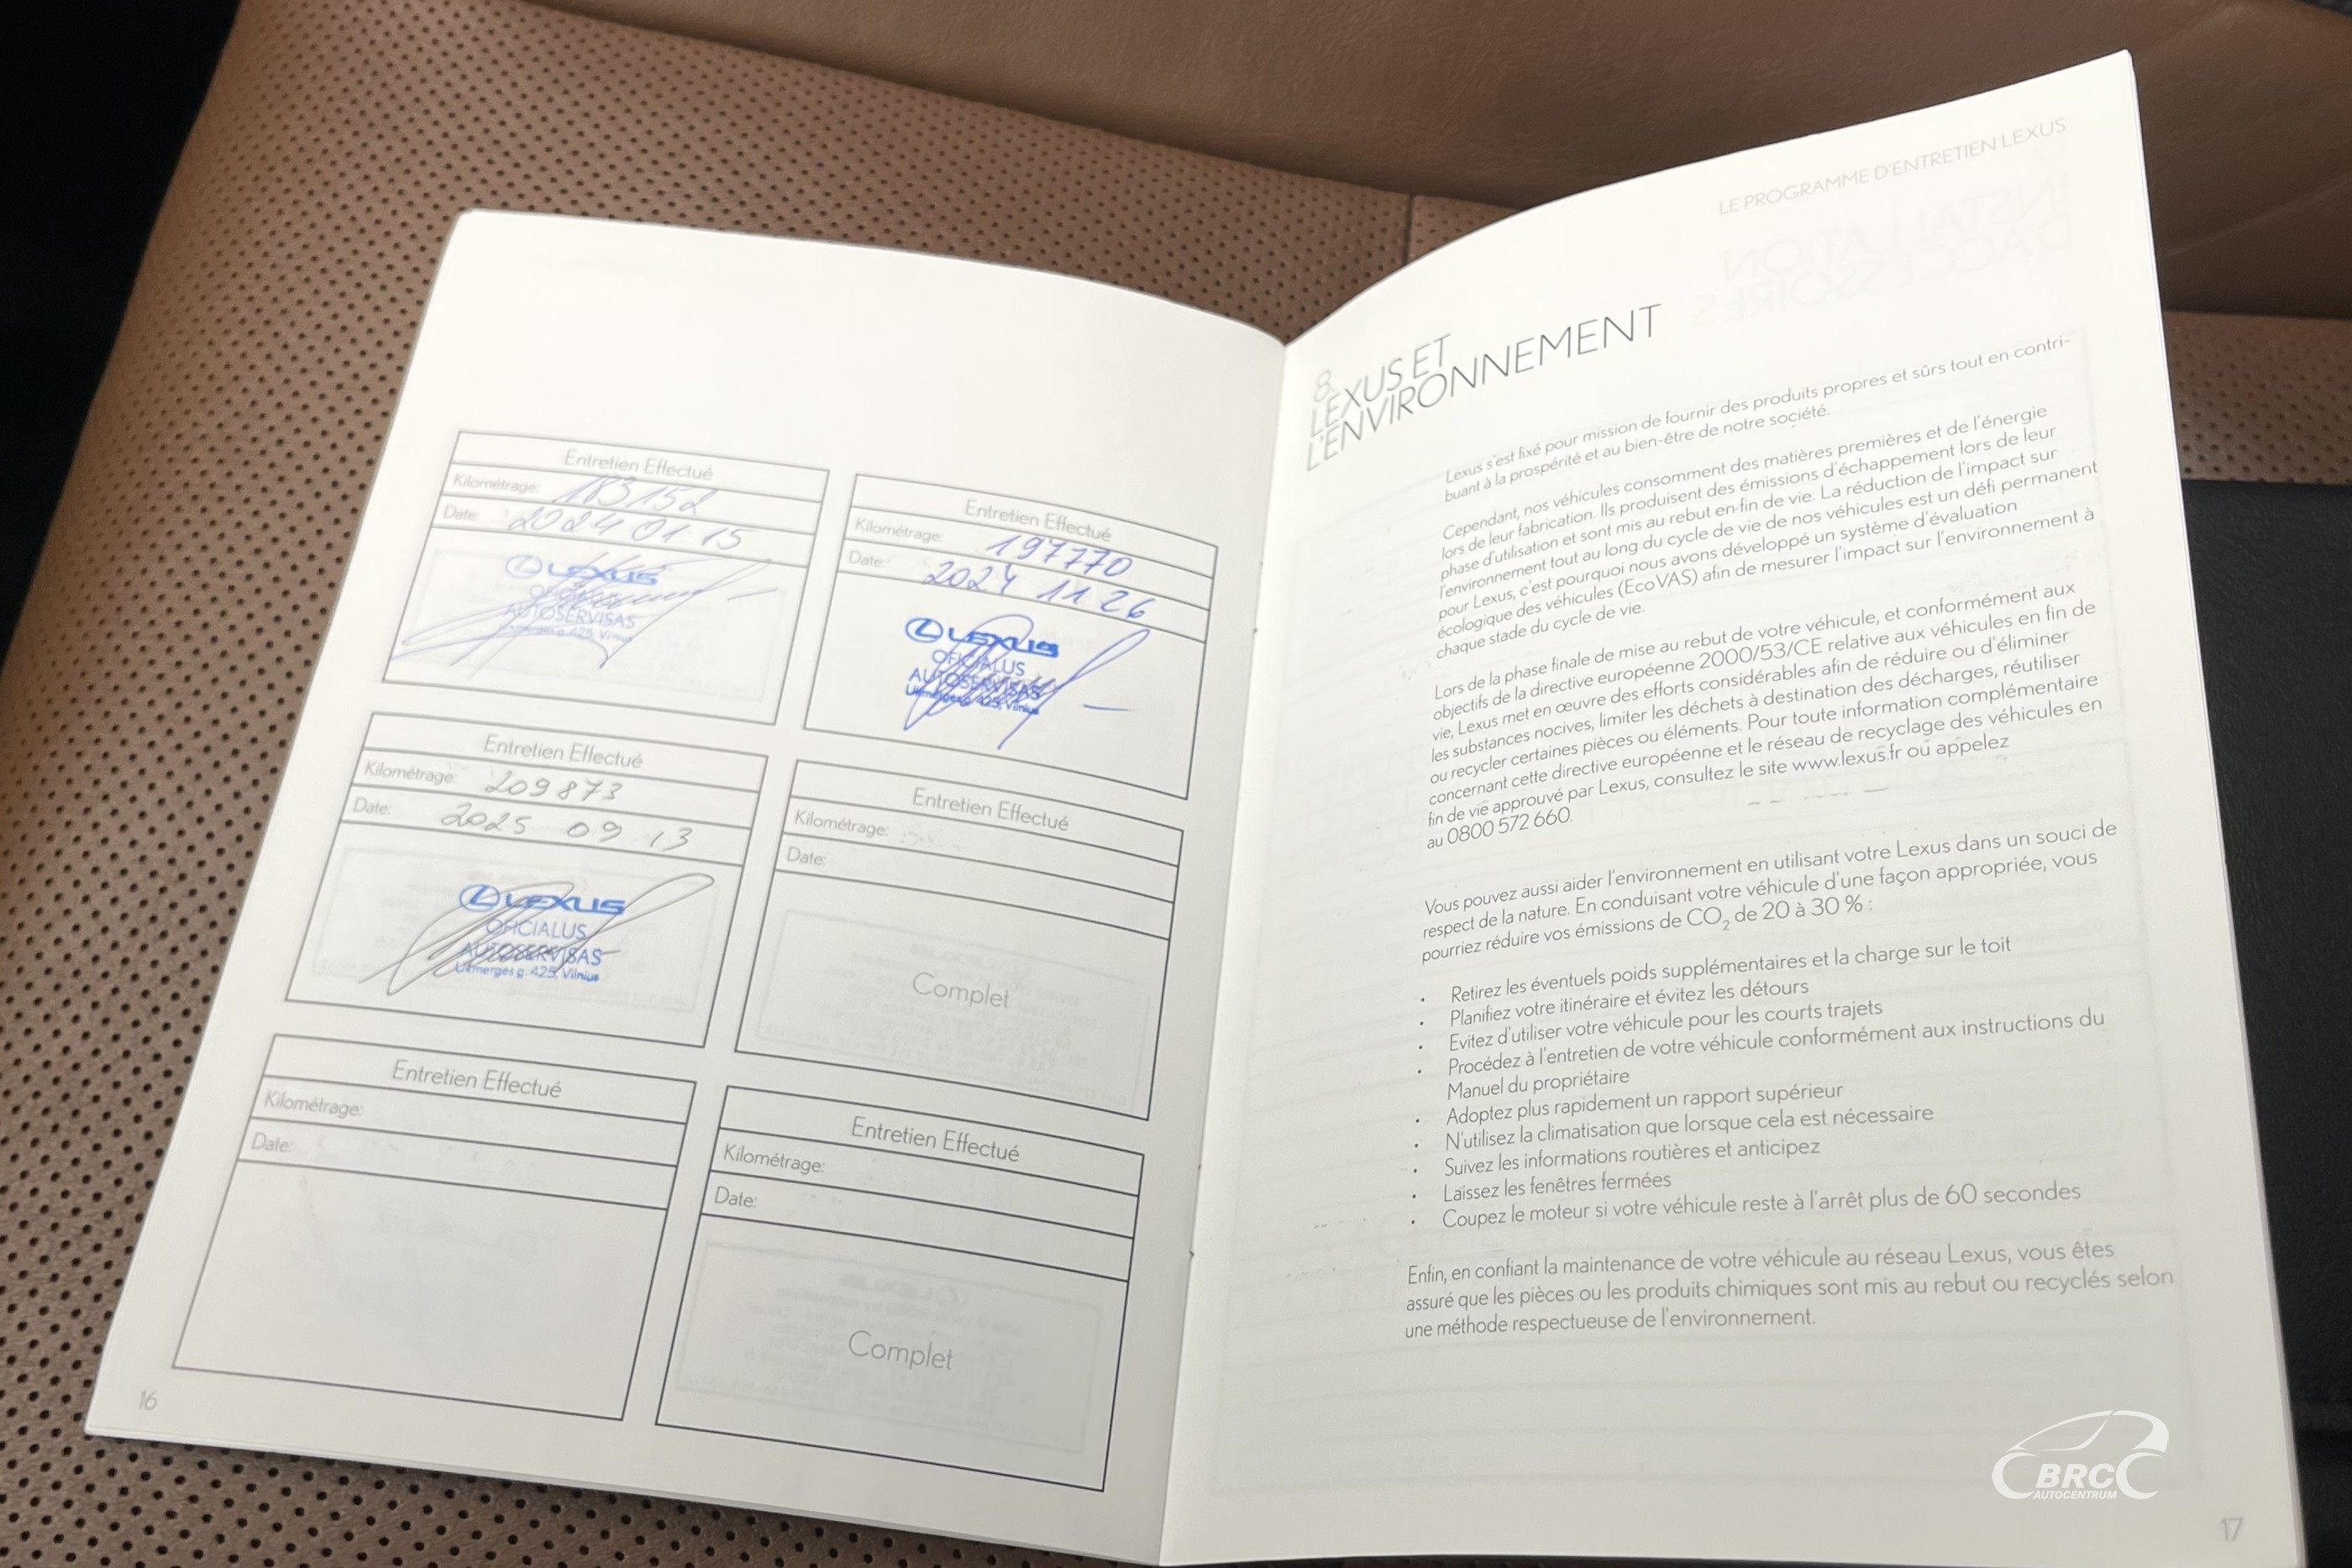 Entretien Effectué
Kilométrage: 183152
Date: 2024 01 15
LEXUS
AUTOSERVISAS
Ukmergės g. 425, Vilnius
Entretien Effectué
Kilométrage: 197770
Date: 2024 11 26
LEXUS
OFICIALUS
AUTOSERVISAS
Ukmergės g. 425, Vilnius
Entretien Effectué
Kilométrage: 209873
Date: 2025 09 13
LEXUS
OFICIALUS
AUTOSERVISAS
Ukmergės g. 425, Vilnius
Entretien Effectué
Kilométrage:
Date:
Complet
Entretien Effectué
Kilométrage:
Date:
Entretien Effectué
Kilométrage:
Date:
Complet
16
LE PROGRAMME D'ENTRETIEN LEXUS
8.
LEXUS ET
L'ENVIRONNEMENT
Lexus s'est fixé pour mission de fournir des produits propres et sûrs tout en contri-
buant à la prospérité et au bien-être de notre société.
Cependant, nos véhicules consomment des matières premières et de l'énergie
lors de leur fabrication. Ils produisent des émissions d'échappement lors de leur
phase d'utilisation et sont mis au rebut en fin de vie. La réduction de l'impact sur
l'environnement tout au long du cycle de vie de nos véhicules est un défi permanent
pour Lexus, c'est pourquoi nous avons développé un système d'évaluation
écologique des véhicules (EcoVAS) afin de mesurer l'impact sur l'environnement à
chaque stade du cycle de vie.
Lors de la phase finale de mise au rebut de votre véhicule, et conformément aux
objectifs de la directive européenne 2000/53/CE relative aux véhicules en fin de
vie, Lexus met en œuvre des efforts considérables afin de réduire ou d'éliminer
les substances nocives, limiter les déchets à destination des décharges, réutiliser
ou recycler certaines pièces ou éléments. Pour toute information complémentaire
concernant cette directive européenne et le réseau de recyclage des véhicules en
fin de vie approuvé par Lexus, consultez le site www.lexus.fr ou appelez
au 0800 572 660.
Vous pouvez aussi aider l'environnement en utilisant votre Lexus dans un souci de
respect de la nature. En conduisant votre véhicule d'une façon appropriée, vous
pourriez réduire vos émissions de CO₂ de 20 à 30 % :
• Retirez les éventuels poids supplémentaires et la charge sur le toit
• Planifiez votre itinéraire et évitez les détours
• Evitez d'utiliser votre véhicule pour les courts trajets
• Procédez à l'entretien de votre véhicule conformément aux instructions du
Manuel du propriétaire
• Adoptez plus rapidement un rapport supérieur
• N'utilisez la climatisation que lorsque cela est nécessaire
• Suivez les informations routières et anticipez
• Laissez les fenêtres fermées
• Coupez le moteur si votre véhicule reste à l'arrêt plus de 60 secondes
Enfin, en confiant la maintenance de votre véhicule au réseau Lexus, vous êtes
assuré que les pièces ou les produits chimiques sont mis au rebut ou recyclés selon
une méthode respectueuse de l'environnement.
17
BRC
AUTOCENTRUM